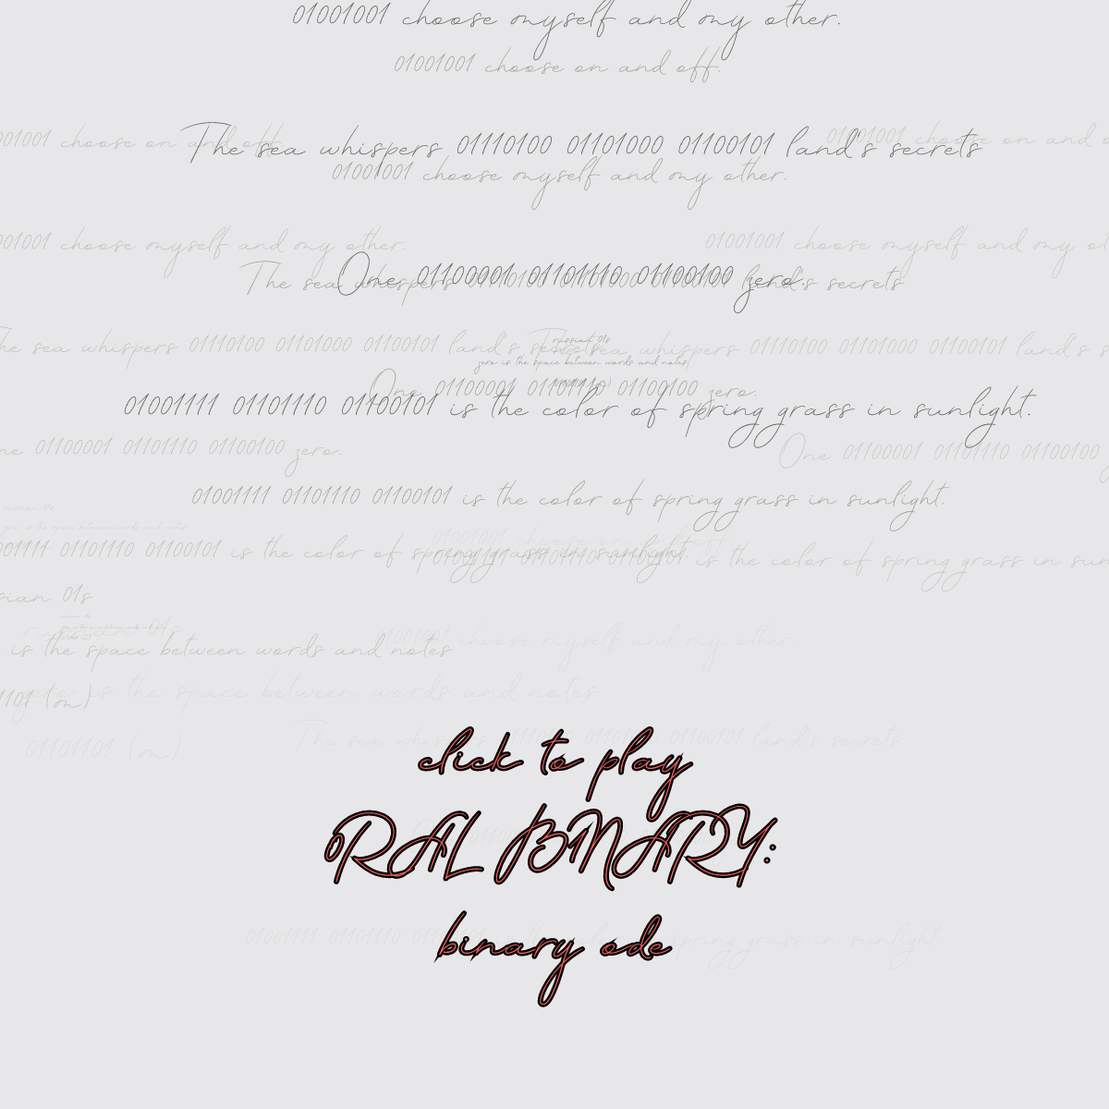 01001001 choose myself and my other.
01001001 choose on and off.
001001 choose on and off.
The sea whispers 01110100 01101000 01100101 land's secrets
01001001 choose on and o
01001001 choose myself and my other.
001001 choose myself and my other.
01001001 choose myself and my ot
One 01100001 01101110 01100100 zero.
The sea whispers 01110100 01101000 01100101 land's secrets
he sea whispers 01110100 01101000 01100101 land's secrets
The sea whispers 01110100 01101000 01100101 land's s
russian 01s
zero is the space between words and notes
One 01100001 01101110 01100100 zero.
01001111 01101110 01100101 is the color of spring grass in sunlight.
ne 01100001 01101110 01100100 zero.
One 01100001 01101110 01100100
01001111 01101110 01100101 is the color of spring grass in sunlight.
russian 01s
zero is the space between words and notes
01001001 choose on and off
001111 01101110 01100101 is the color of spring grass in sunlight.
01001111 01101110 01100101 is the color of spring grass in sun
sian 01s
russian 01s
01001001 choose myself and my other
is the space between words and notes
zero is the space between words and notes
1101 (om)
The sea whispers 01110100 01101000 01100101 land's secrets
01101101 (om)
click to play
0RAL B1NARY:
binary ode
01001111 01101110 01100101 is the color of spring grass in sunlight